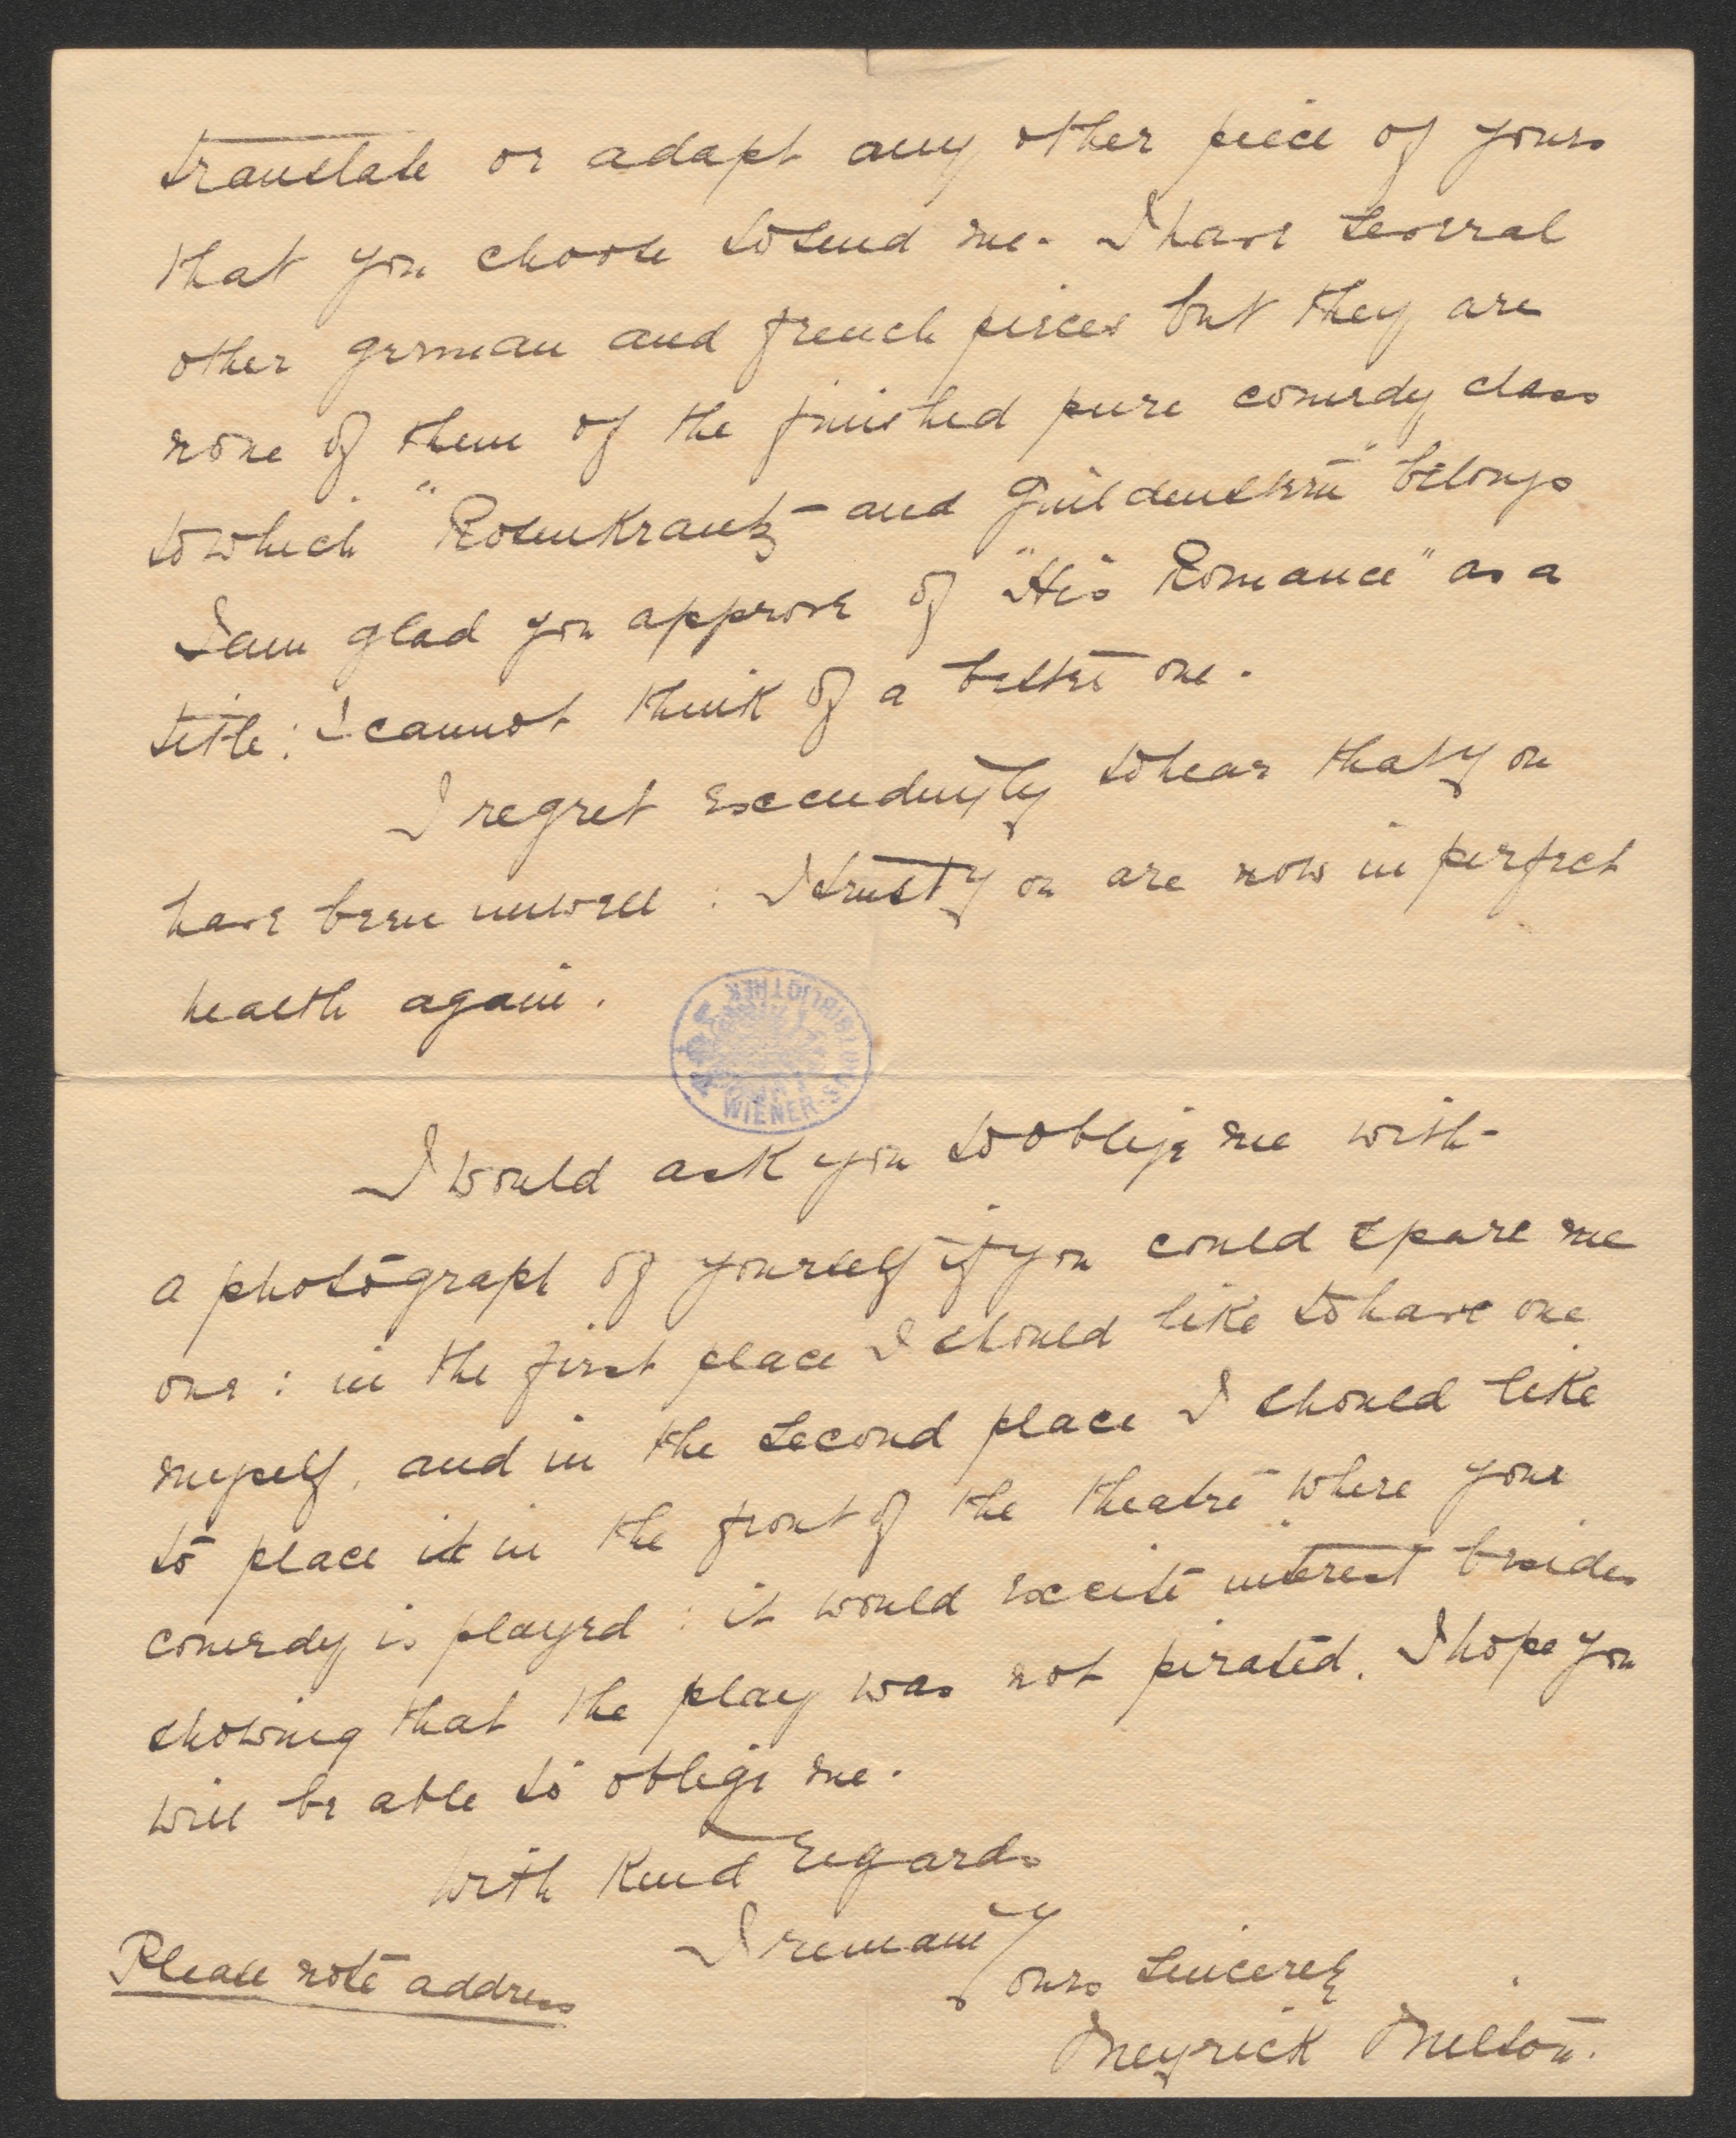 translate or adapt any other piece of yours
that you choose to send me. I have several
other german and french pieces but they are
none of them of the finished pure comedy class
to which "Rosenkrantz and Guildenstern" belongs
I am glad you approve of "His Romance" as a
title: I cannot think of a better one.
I regret exceedingly to hear that you
have been unwell: I trust you are now in perfect
health again.
WIENER STADTBIBLIOTHEK
I would ask you to oblige me with
a photograph of yourself if you could spare me
one: in the first place I should like to have one
myself, and in the second place I should like
to place it in the front of the theatre where your
comedy is played: it would excite interest besides
showing that the play was not pirated. I hope you
will be able to oblige me.
With kind regards
I remain
Yours sincerely
Please note address
Meyrick Milton.